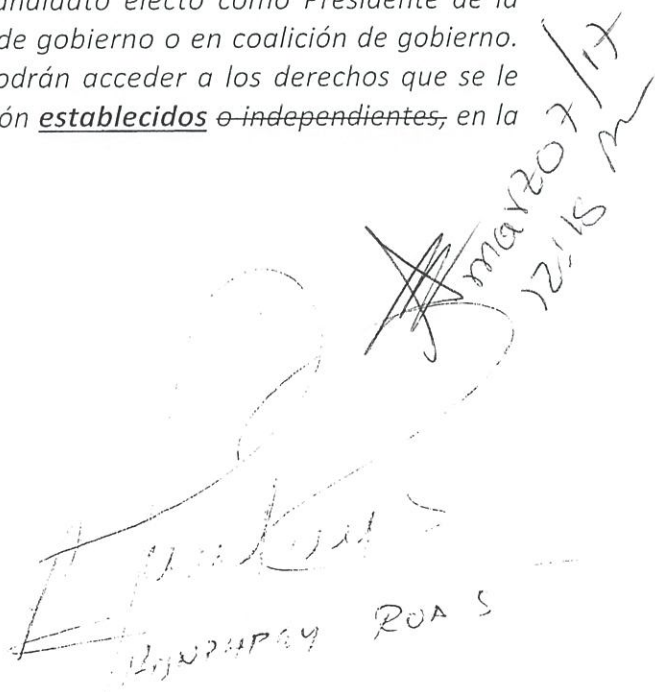 andidato electo como Presidente de la
de gobierno o en coalición de gobierno.
odrán acceder a los derechos que se le
ón establecidos o independientes, en la
marzo 7/17
12:15 m
ROA S